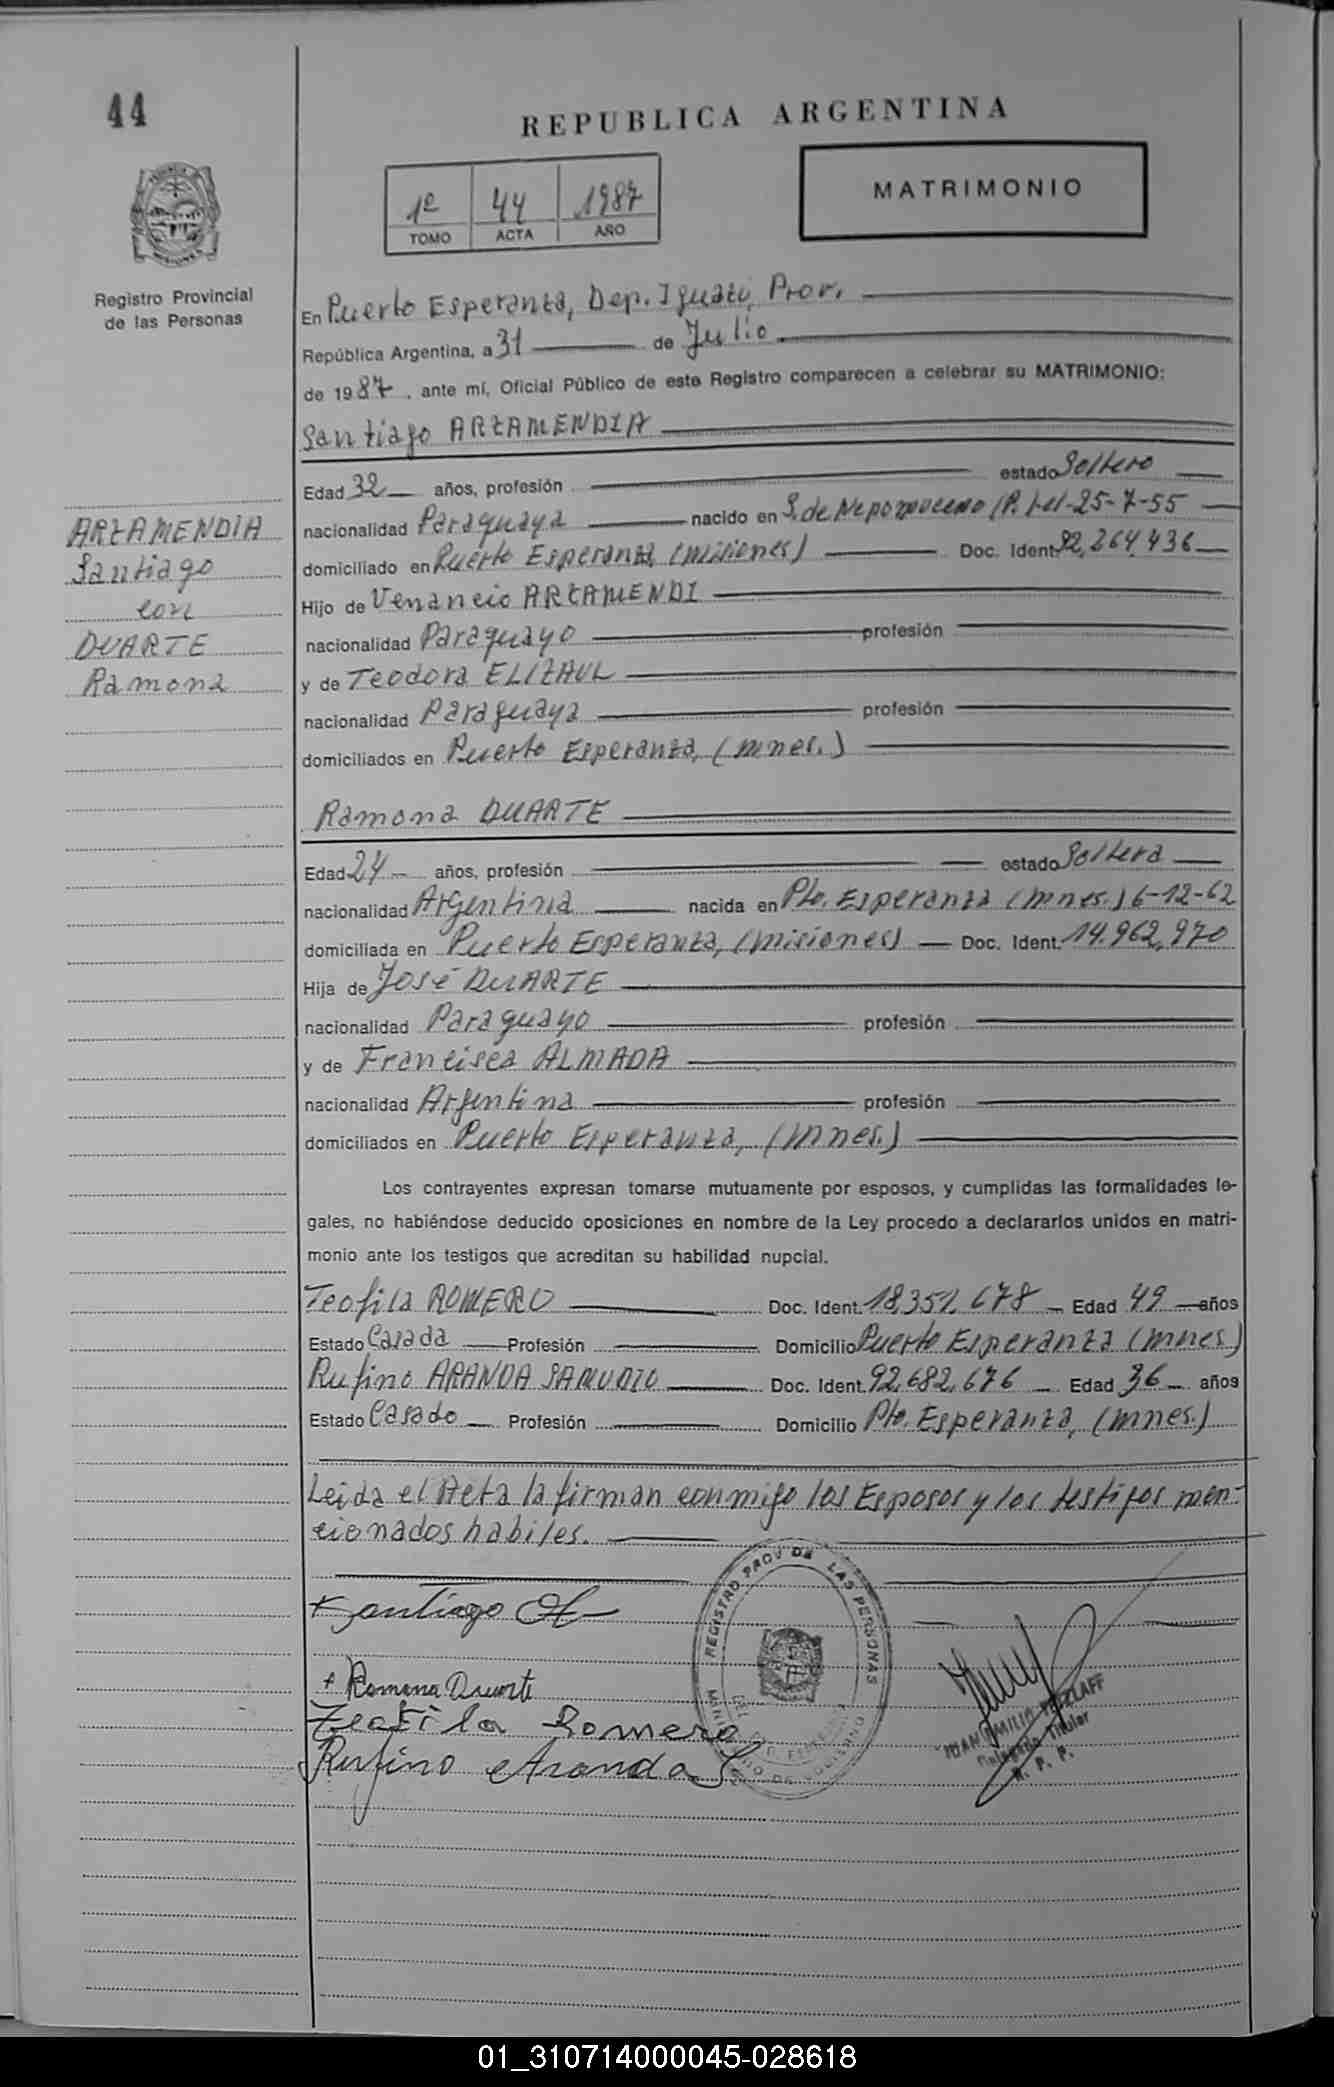 44
REPUBLICA ARGENTINA
1º 44 1987
TOMO ACTA AÑO
MATRIMONIO
Registro Provincial
de las Personas
En Puerto Esperanza, Dep. Iguazú, Prov.
República Argentina, a 31 de Julio
de 1987, ante mí, Oficial Público de este Registro comparecen a celebrar su MATRIMONIO:
Santiago ARZAMENDIA
Edad 32 años, profesión estado Soltero
nacionalidad Paraguaya nacido en S. de Nepomuceno (P.) el-25-7-55
domiciliado en Puerto Esperanza (misiones) Doc. Ident. 92,264,436
Hijo de Venancio ARZAMENDI
nacionalidad Paraguayo profesión
y de Teodora ELIZAUL
nacionalidad Paraguaya profesión
domiciliados en Puerto Esperanza, (mnes.)
ARZAMENDIA
Santiago
con
DUARTE
Ramona
Ramona DUARTE
Edad 24 años, profesión estado Soltera
nacionalidad Argentina nacida en Pto. Esperanza (mnes.) 6-12-62
domiciliada en Puerto Esperanza, (misiones) Doc. Ident. 14.962,970
Hija de José DUARTE
nacionalidad Paraguayo profesión
y de Francisca ALMADA
nacionalidad Argentina profesión
domiciliados en Puerto Esperanza, (mnes.)
Los contrayentes expresan tomarse mutuamente por esposos, y cumplidas las formalidades le-
gales, no habiéndose deducido oposiciones en nombre de la Ley procedo a declararlos unidos en matri-
monio ante los testigos que acreditan su habilidad nupcial.
Teofila ROMERO Doc. Ident. 18,351,678 Edad 49 años
Estado Casada Profesión Domicilio Puerto Esperanza (mnes)
Rufino ARANDA SAMUDIO Doc. Ident. 92,682,676 Edad 36 años
Estado Casado Profesión Domicilio Pto. Esperanza, (mnes.)
Leida el Acta la firman conmigo los Esposos y los testigos men-
cionados habiles.
Santiago
Ramona Duarte
Teofila Romero
Rufino Aranda S.
REGISTRO PROV DE LAS PERSONAS
MINISTERIO DE GOBIERNO
JUAN EMILIO
Delegado Titular
R. P. P.
01_310714000045-028618